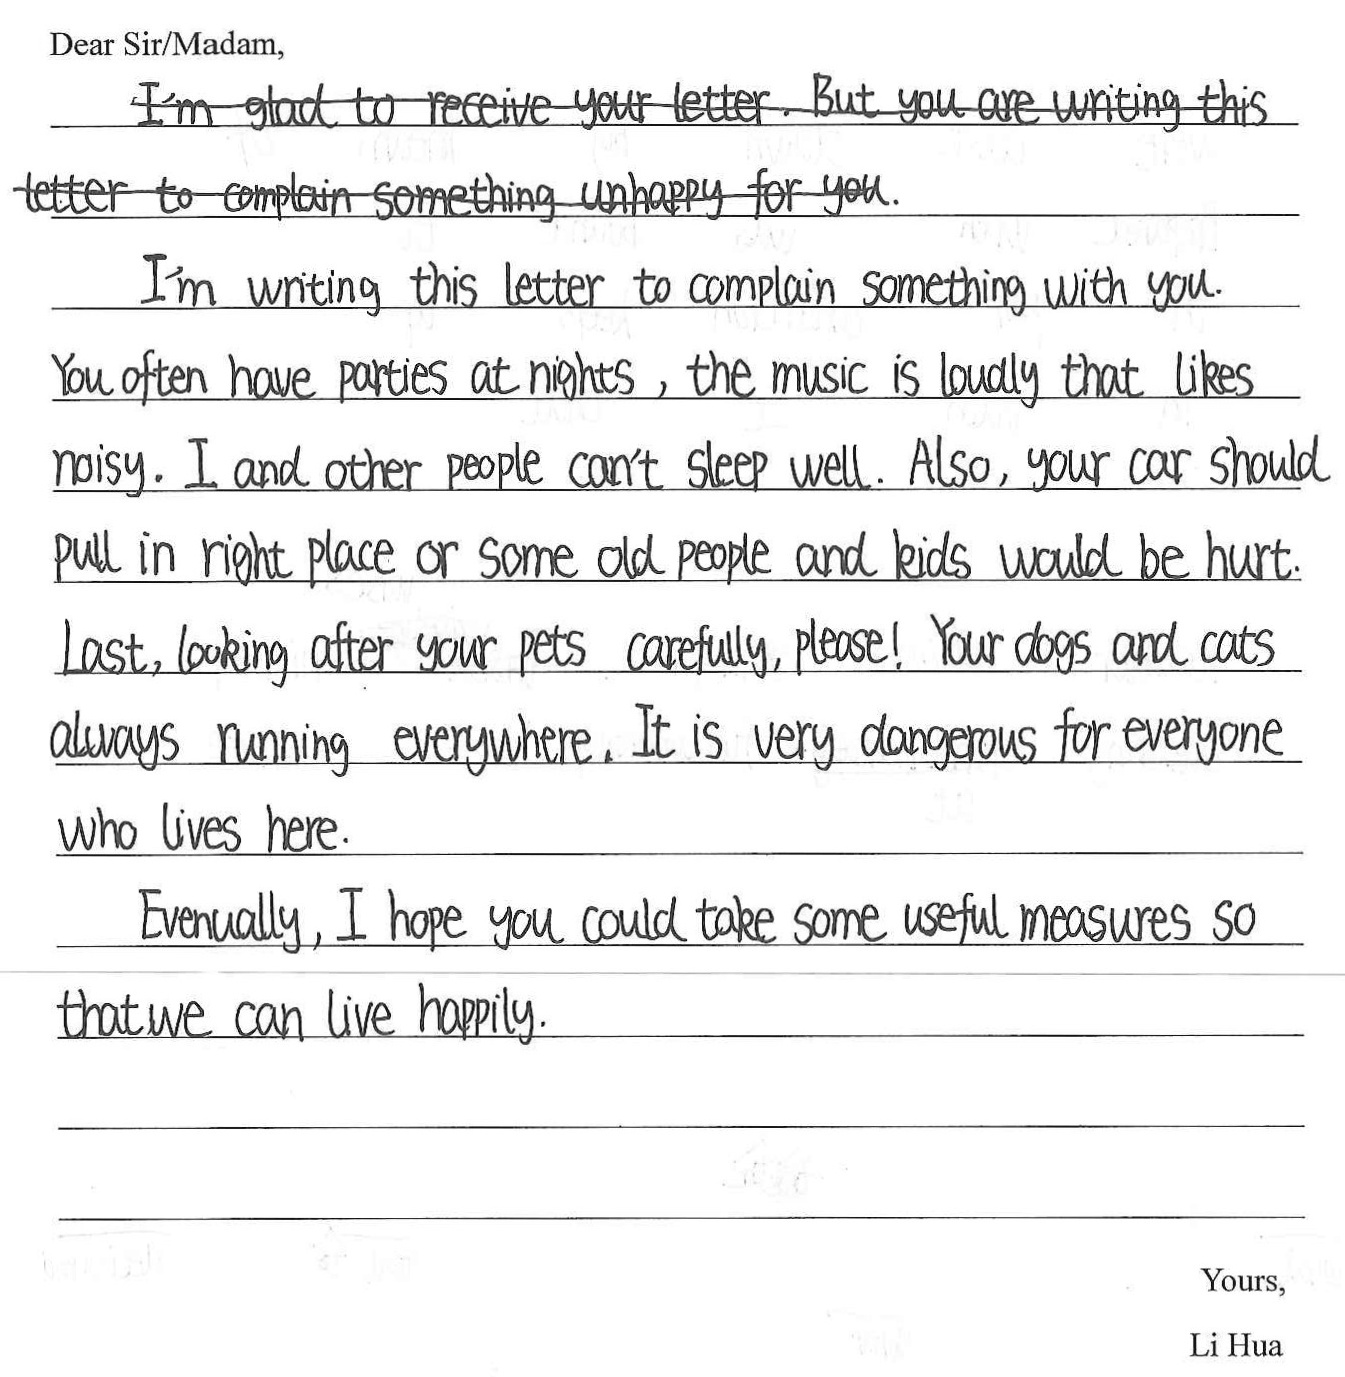 Dear Sir/Madam,
I'm glad to receive your letter. But you are writing this
letter to complain something unhappy for you.
I'm writing this letter to complain something with you.
You often have parties at nights, the music is loudly that likes
noisy. I and other people can't sleep well. Also, your car should
pull in right place or some old people and kids would be hurt.
Last, looking after your pets carefully, please! Your dogs and cats
always running everywhere. It is very dangerous for everyone
who lives here.
Evenually, I hope you could take some useful measures so
that we can live happily.
Yours,
Li Hua